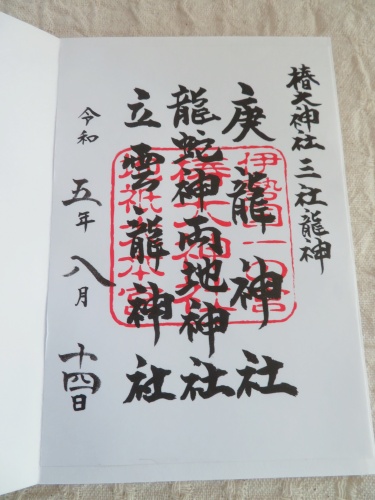 椿大神社 三社龍神
庚龍神社
龍蛇神両地神社
立雲龍神社
令和五年八月十四日
伊勢国一の宮
椿大神社
地祇猿田彦大本宮